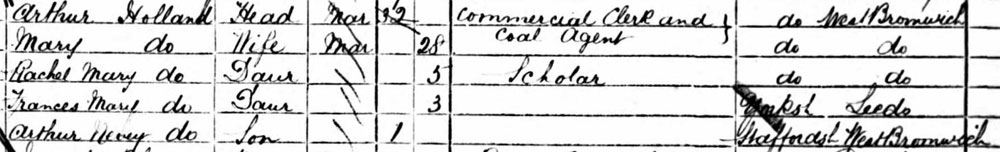 Arthur Holland Head Mar 32 Commercial Clerk and } do West Bromwich
Mary do Wife Mar 28 Coal Agent do do
Rachel Mary do Daur 5 Scholar do do
Frances Mary do Daur 3 Yorksh Leeds
Arthur do Son 1 Staffordsh West Bromwich